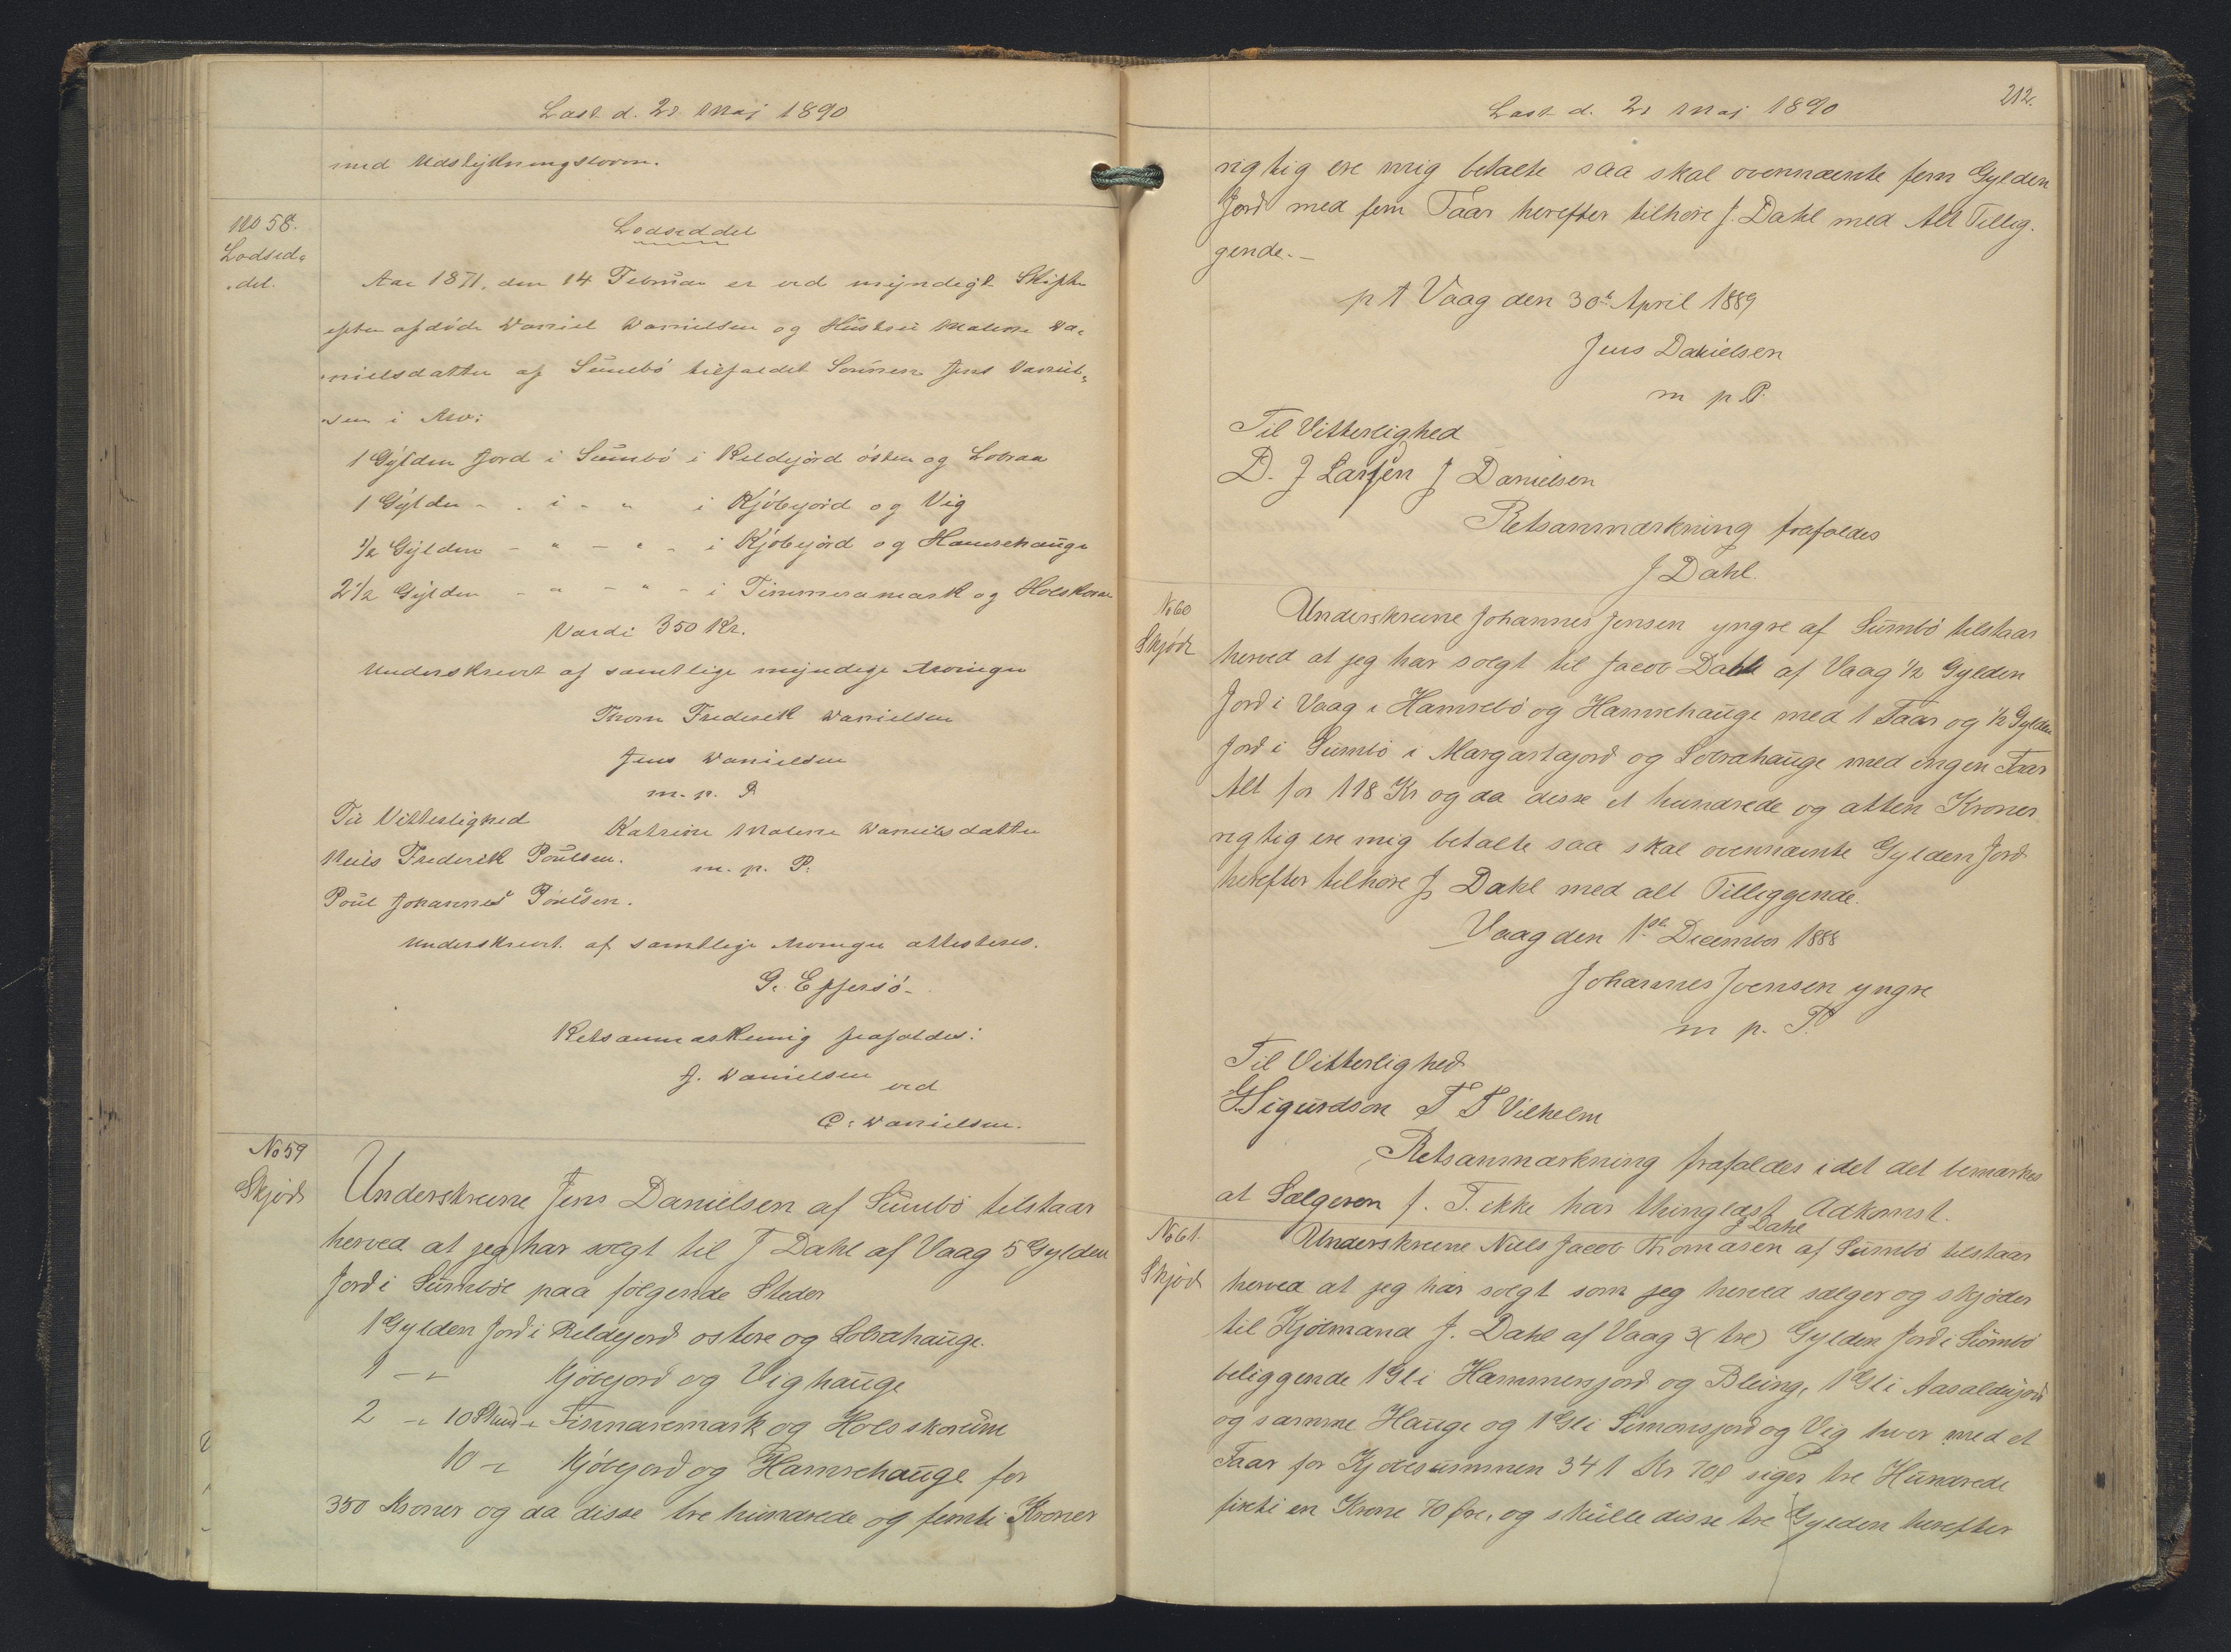 Læst d. 21 Maj 1890
med Udskiftningsloven.
No 58.
Lodsed=
=del.
Lodseddel
Aar 1871, den 14 Februar er ved myndigt Skifte
efter afdøde Daniel Danielsen og Hustru Malene Da=
=nielsdatter af Sumbø tilfaldet Sønnen Jens Daniel=
=sen i Arv:
1 Gylden Jord i Sumbø i Keldejord østen og Lobraa
1 Gylden - " i - " i Kjøbejord og Vig
1/2 Gylden - " - " - i Kjøbejord og Hamrehauge
2 1/2 Gylden - " - " - i Timmeramark og Holskorn
Værdi 350 Kr.
Underskrevet af samtlige myndige Arvinger
Thom Frederik Danielsen
Jens Danielsen
m. p. P.
Til Vitterlighed
Katrine Malene Danielsdatter
Niels Frederik Poulsen.
m. p. P.
Poul Johannes Poulsen.
Underskrevet af samtlige Arvinger attesteres.
G. Effersø.
Retsanmærkning frafaldes:
J. Danielsen
ved
C. Danielsen.
No 59
Skjøde
Underskrevne Jens Danielsen af Sumbø tilstaar
herved at jeg har solgt til J Dahl af Vaag 5 Gylden
Jord i Sumbøe paa følgende Steder
1 Gylden Jord i Keldejord østere og Lobrahauge.
1 - " Kjøbejord og Vighauge
2 - " 10 Skind " Timmaremark og Holsskoreune
10 - " Kjøbejord og Hamrehauge for
350 Kroner og da disse tre hundrede og femti Kroner
Læst d. 21 Maj 1890
212.
rigtig ere mig betalte saa skal ovennævnte fem Gylden
Jord med fem Faar herefter tilhøre J. Dahl med Alt Tillig.
gende.-
p t Vaag den 30te April 1889
Jens Danielsen
m p P.
Til Vitterlighed
D. J Larsen J Danielsen
Retsanmærkning frafaldes
J Dahl.
No 60
Skjøde
Underskrevne Johannes Jensen yngre af Sumbø tilstaar
herved at jeg har solgt til Jacob Dahl af Vaag 1/2 Gylden
Jord i Vaag i Hamrebø og Hamrehauge med 1 Faar og 1/2 Gylden
Jord i Sumbø i Margartajord og Lobrahauge med engen Faar
Alt for 118 Kr og da disse et hundrede og atten Kroner
rigtig ere mig betalte saa skal ovennævnte Gylden Jord
herefter tilhøre J. Dahl med alt Tilliggende.
Vaag den 1ste December 1888
Johannes Joensen yngre
m p. P.
Til Vitterlighed
G. Sigurdson T T Vilhelm
Retsanmærkning frafaldes idet det bemærkes
at Sælgeren f. T. ikke har thinglæst Adkomst.
J Dahl
No 61.
Skjøde
Underskrevne Niels Jacob Thomasen af Sumbø tilstaar
herved at jeg har solgt som jeg herved sælger og skjøder
til Kjøbmand J. Dahl af Vaag 3 (tre) Gylden Jord i Sumbø
beliggende 1 Gl i Hammersjord og Bleing, 1 Gl i Aasaldujord
og samme Hauge og 1 Gl i Simonsjord og Vig hver med et
Faar for Kjøbesummen 341 Kr 70 Ø siger tre Hundrede
firti en Krone 70 Øre, og skulle disse tre Gylden herefter